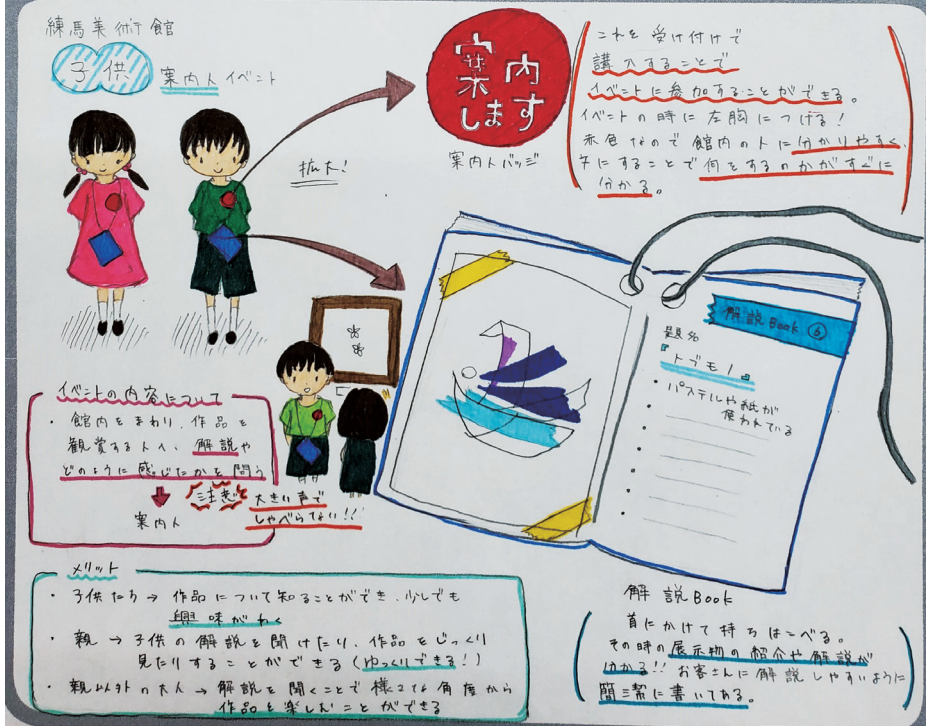 練馬美術館
子供
案内人イベント
案内します
案内人バッジ
拡大!
これを受け付けで
講入することで
イベントに参加することができる。
イベントの時に左胸につける!
赤色なので館内の人に分かりやすく、
字にすることで何をするのかがすぐに
分かる。
解説Book ⑥
題名
『トブモノ』
・パステルや紙が
使われている
イベントの内容について
・館内をまわり、作品を
観賞する人へ、解説や
どのように感じたかを問う
↓
案内人
注意 大きい声で
しゃべらない!!
メリット
・子供たち→作品について知ることができ、少しでも
興味がわく
・親→子供の解説を聞けたり、作品をじっくり
見たりすることができる(ゆっくりできる!)
・親以外の大人→解説を聞くことで様々な角度から
作品を楽しむことができる
解説Book
首にかけて持ちはこべる。
その時の展示物の紹介や解説が
分かる!!お客さんに解説しやすいように
簡潔に書いてある。